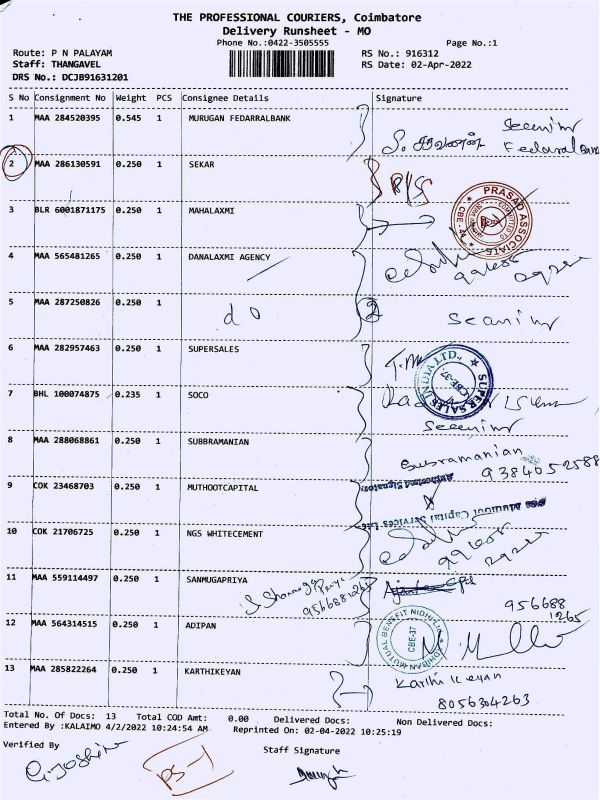 THE PROFESSIONAL COURIERS, Coimbatore
Delivery Runsheet - MO
Phone No.:0422-3505555
Page No.:1
Route: P N PALAYAM
RS No.: 916312
Staff: THANGAVEL
RS Date: 02-Apr-2022
DRS No.: DCJB91631201
S No Consignment No Weight PCS Consignee Details Signature
1 MAA 284520395 0.545 1 MURUGAN FEDARRALBANK
Fedaral Bank
2 MAA 286130591 0.250 1 SEKAR
3 BLR 6001871175 0.250 1 MAHALAXMI
PRASAD ASSOCIATES
4 MAA 565481265 0.250 1 DANALAXMI AGENCY
5 MAA 287250826 0.250 1 do 2
6 MAA 282957463 0.250 1 SUPERSALES
SUPER SALES INDIA LTD., CBE-37
7 BHL 100074875 0.235 1 SOCO
8 MAA 288068861 0.250 1 SUBBRAMANIAN
Subramanian
9384052588
9 COK 23468703 0.250 1 MUTHOOTCAPITAL
Authorised Signatory
Muthoot Capital Services Ltd
10 COK 21706725 0.250 1 NGS WHITECEMENT
11 MAA 559114497 0.250 1 SANMUGAPRIYA
9566881265
956688
1265
12 MAA 564314515 0.250 1 ADIPAN
MUTUAL BENEFIT NIDHI LTD CBE-37
13 MAA 285822264 0.250 1 KARTHIKEYAN
Karthikeyan
8056304263
Total No. Of Docs: 13 Total COD Amt: 0.00 Delivered Docs: Non Delivered Docs:
Entered By :KALAIMO 4/2/2022 10:24:54 AM Reprinted On: 02-04-2022 10:25:19
Verified By
Staff Signature
PS-1